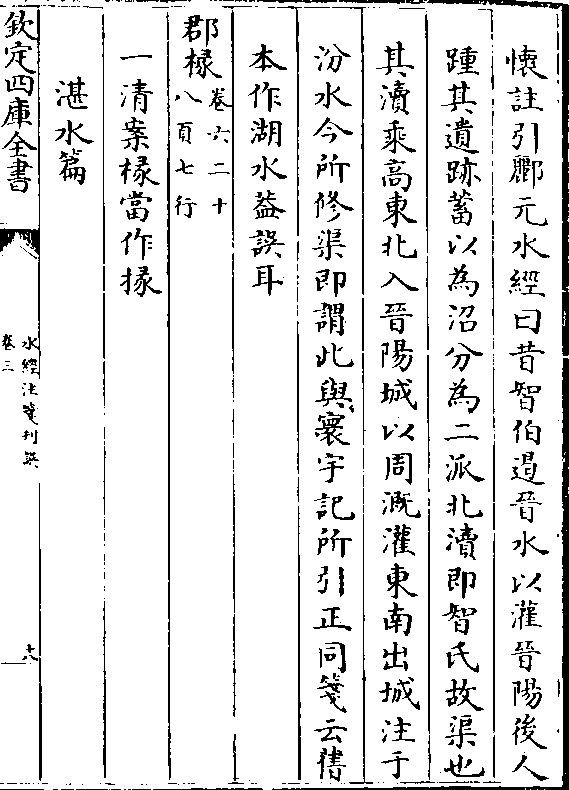 懷註引酈元水經曰昔智伯遏晉水以灌晉陽後人
踵其遺跡蓄以為沼分為二派北瀆即智氏故渠也
其瀆乘高東北入晉陽城以周溉灌東南出城注于
汾水今所修渠即謂此與寰宇記所引正同箋云舊
本作湖水葢誤耳
郡椽卷六二十八頁七行
一清案椽當作掾
湛水篇
欽定四庫全書
水經注箋刊誤
卷三
十八